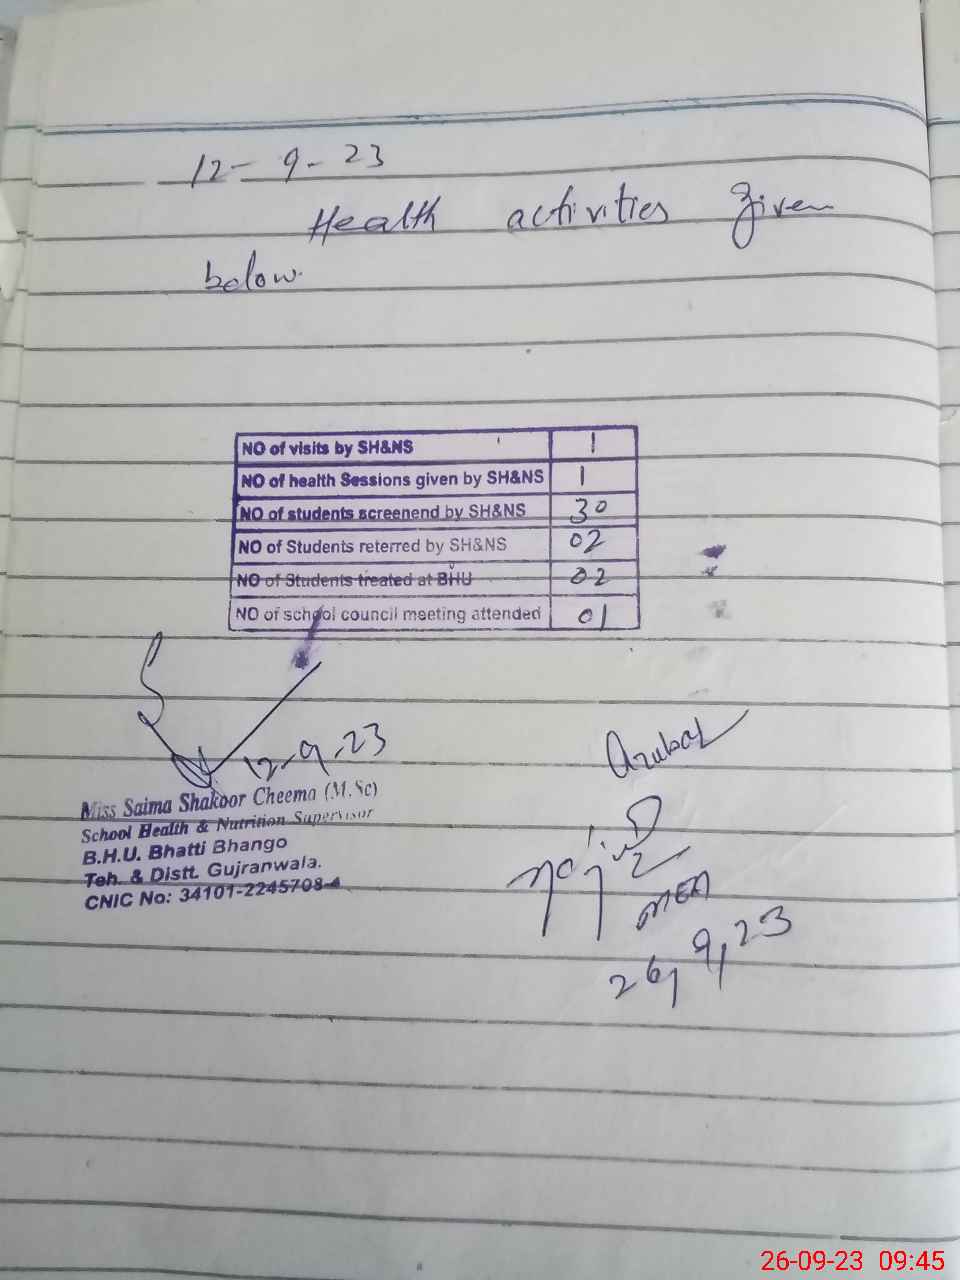 12-9-23
Health activities given
below.
NO of visits by SH&NS 1
NO of health Sessions given by SH&NS 1
NO of students screenend by SH&NS 30
NO of Students reterred by SH&NS 02
NO of Students treated at BHU 02
NO of school council meeting attended 01
12-9-23
Miss Saima Shakoor Cheema (M.Sc)
School Health & Nutrition Supervisor
B.H.U. Bhatti Bhango
Teh. & Distt. Gujranwala.
CNIC No: 34101-2245708-4
MEA
26,9,23
26-09-23 09:45